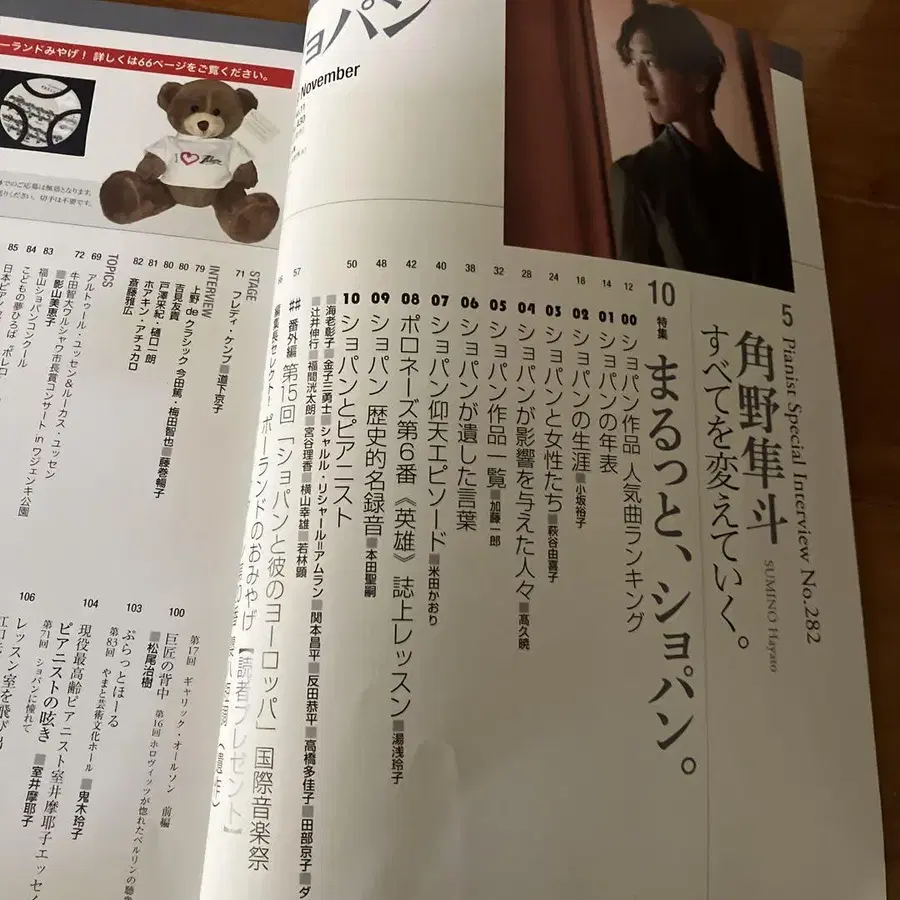 ョパン
November
5 Pianist Special Interview No.282
角野隼斗
SUMINO Hayato
すべてを変えていく。
10 特集 まるっと、ショパン。
12 00 ショパン作品 人気曲ランキング
14 01 ショパンの年表
18 02 ショパンの生涯 ■小坂裕子
24 03 ショパンと女性たち ■萩谷由喜子
28 04 ショパンが影響を与えた人々 ■髙久暁
32 05 ショパン作品一覧 ■加藤一郎
38 06 ショパンが遺した言葉
40 07 ショパン仰天エピソード ■米田かおり
42 08 ポロネーズ第6番《英雄》誌上レッスン ■湯浅玲子
48 09 ショパン 歴史的名録音 ■本田聖嗣
50 10 ショパンとピアニスト
■海老彰子 ■金子三勇士 ■シャルル・リシャール=アムラン ■関本昌平 ■反田恭平 ■高橋多佳子 ■田部京子 ■ダ
■辻井伸行 ■福間洸太朗 ■宮谷理香 ■横山幸雄 ■若林顕
57 ## 番外編 第15回「ショパンと彼のヨーロッパ」国際音楽祭
編集長セレクト! ポーランドのおみやげ
【読者プレゼント】
ーランドみやげ! 詳しくは66ページをご覧ください。
I
切手は不要です。
STAGE
71 フレディ・ケンプ ■道下京子
INTERVIEW
79 上野 de クラシック 今田篤・梅田智也 ■藤巻暢子
80 吉見友貴
80 戸澤采紀・樋口一朗
81 ホアキン・アチュカロ
82 斎藤雅広
TOPICS
69 アルトゥール・ユッセン&ルーカス・ユッセン
72 牛田智大ワルシャワ市長賞コンサート in ワジェンキ公園
■影山美恵子
83 福山ショパンコンクール
84 こどもの夢ひろば“ボレロ
85 日本ピアノ
100 第17回 ギャリック・オールソン 前編
巨匠の背中 第16回 ホロヴィッツが惚れたベルリンの聴
■松尾治樹
103 ぷらっとほーる
第83回 やまと芸術文化ホール ■鬼木玲子
104 現役最高齢ピアニスト室井摩耶子エッセイ
ピアニストの呟き
第71回 ショパンに憧れて ■室井摩耶子
106 レッスン室を飛び出